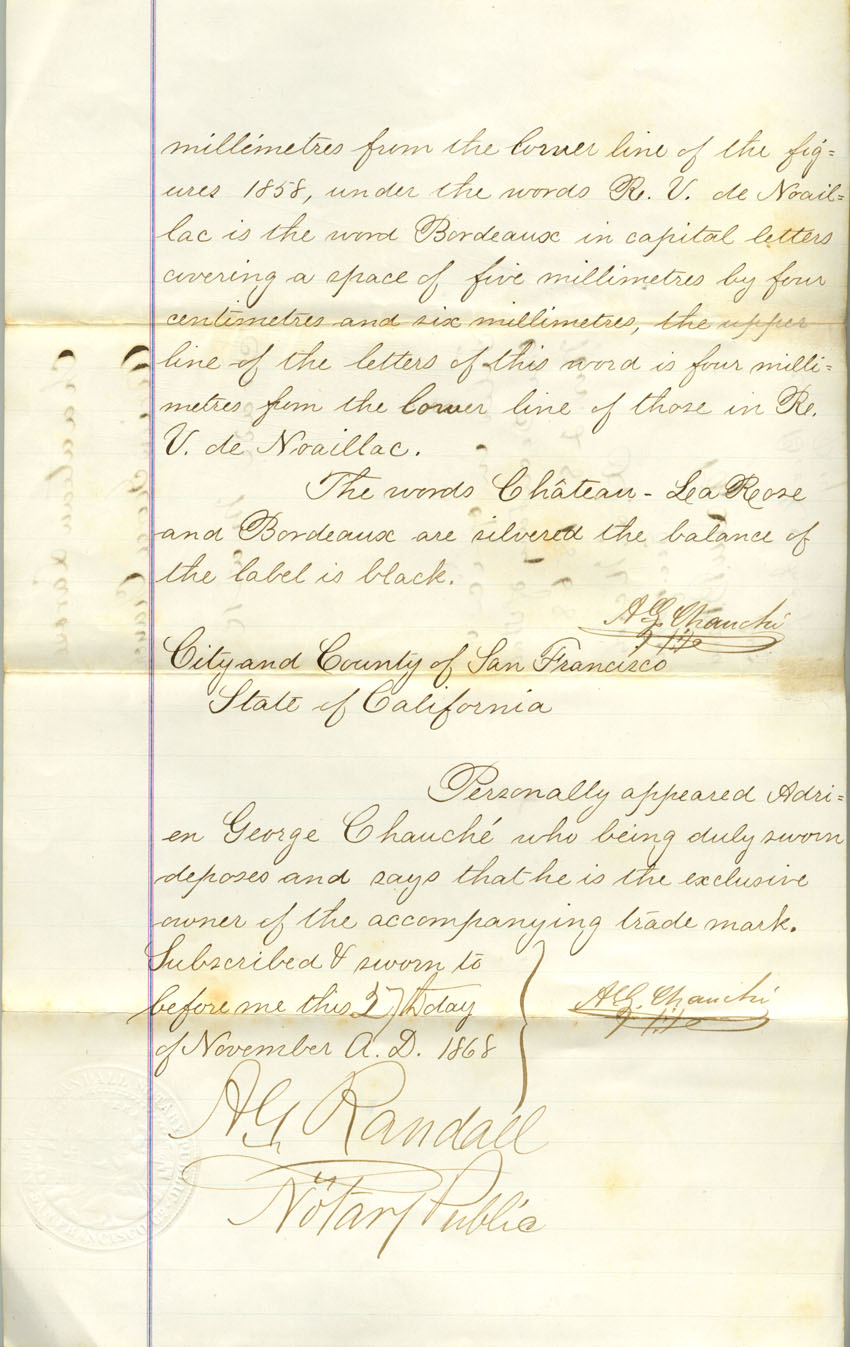 millimetres from the lower line of the fig=
ures 1858, under the words R. V. de Noail=
lac is the word Bordeaux in capital letters
covering a space of five millimetres by four
centimetres and six millimetres, the upper
line of the letters of this word is four milli=
metres from the lower line of those in R.
V. de Noaillac.
The words Château - La Rose
and Bordeaux are silvered the balance of
the label is black.
A G. Chauché
City and County of San Francisco
State of California
Personally appeared Adri=
en George Chauché who being duly sworn
deposes and says that he is the exclusive
owner of the accompanying trade mark.
Subscribed & sworn to
before me this day
of November A. D. 1868
A. G. Chauché
A G Randall
Notary Public